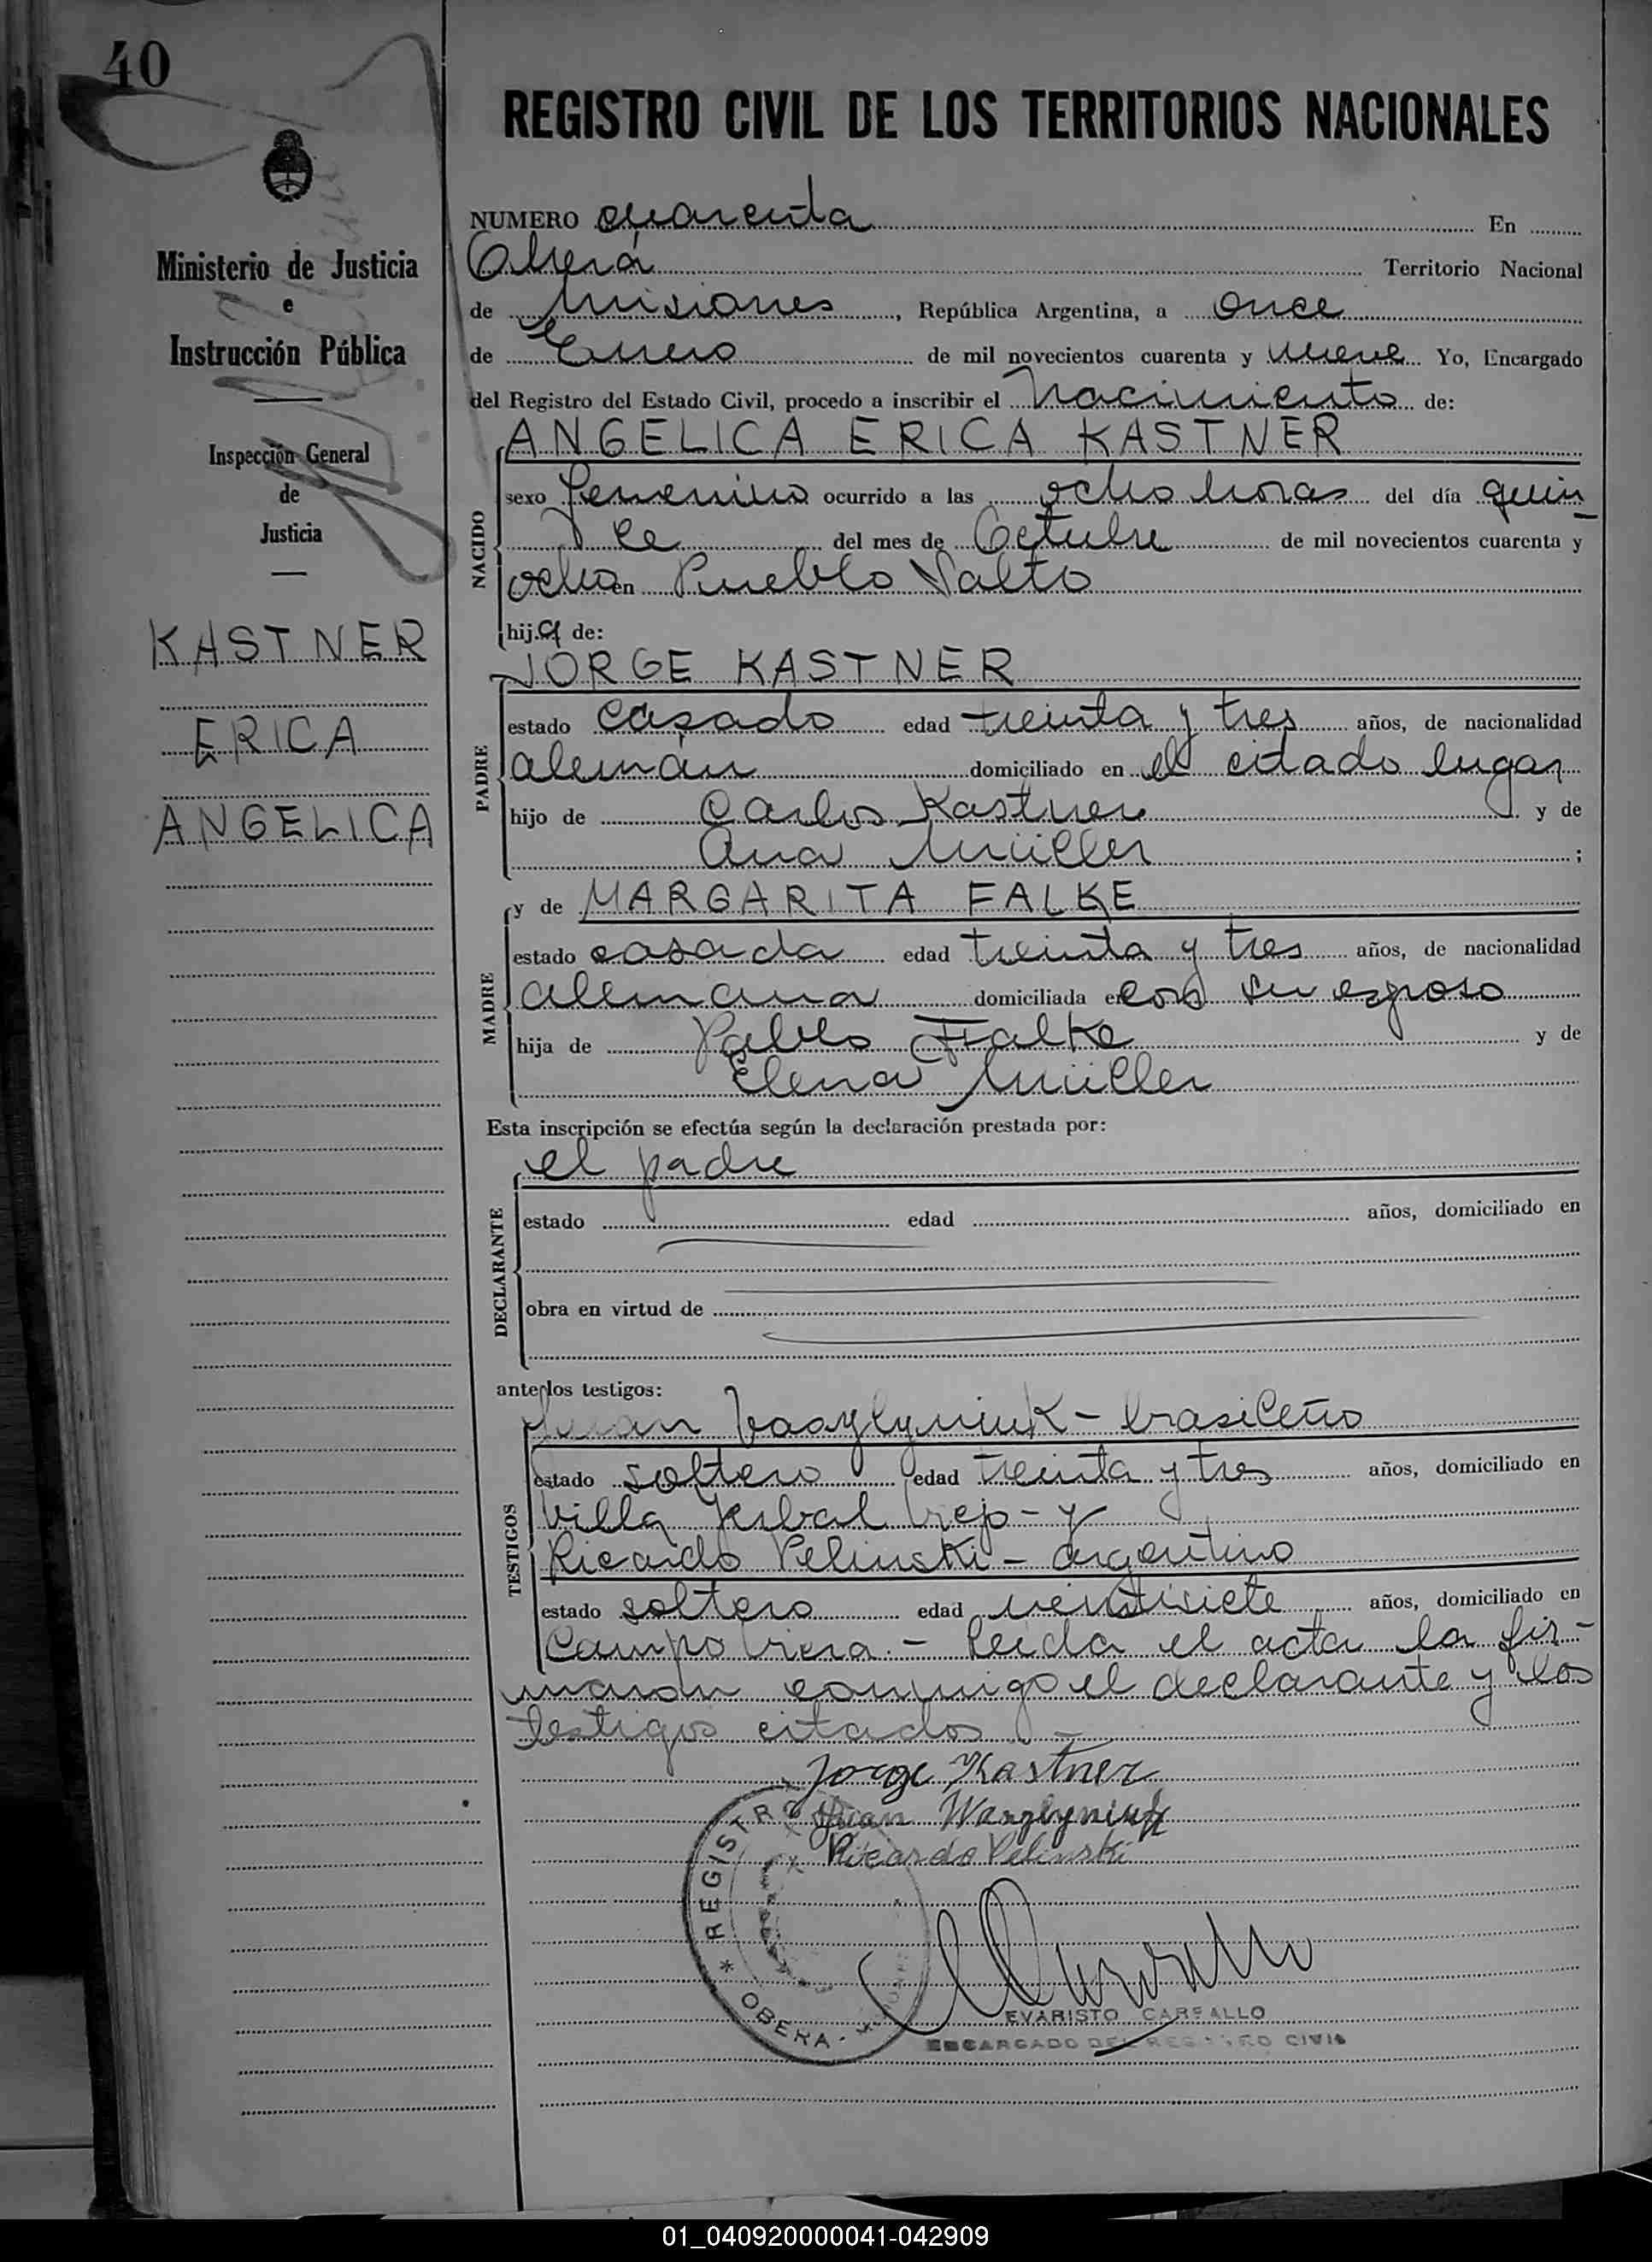 40
Ministerio de Justicia
e
Instrucción Pública
Inspección General
de
Justicia
KASTNER
ERICA
ANGELICA
REGISTRO CIVIL DE LOS TERRITORIOS NACIONALES
NUMERO cuarenta En
Oberá Territorio Nacional
de Misiones, República Argentina, a once
de Enero de mil novecientos cuarenta y nueve Yo, Encargado
del Registro del Estado Civil, procedo a inscribir el nacimiento de:
ANGELICA ERICA KASTNER
NACIDO
sexo femenino ocurrido a las ocho horas del día quin
ce del mes de Octubre de mil novecientos cuarenta y
ocho en Pueblo Salto
hija de:
JORGE KASTNER
PADRE
estado casado edad treinta y tres años, de nacionalidad
alemán domiciliado en el citado lugar
hijo de Carlos Kastner y de
Ana Müller ;
y de MARGARITA FALKE
MADRE
estado casada edad treinta y tres años, de nacionalidad
alemana domiciliada en con su esposo
hija de Pablo Falke y de
Elena Müller
Esta inscripción se efectúa según la declaración prestada por:
el padre
DECLARANTE
estado edad años, domiciliado en
obra en virtud de
ante los testigos:
Juan Vasylyniuk - brasileño
TESTIGOS
estado soltero edad treinta y tres años, domiciliado en
Villa Yerbal Viejo - y
Ricardo Pelinski - argentino
estado soltero edad veintisiete años, domiciliado en
Campo Viera. - Leida el acta la fir-
maron conmigo el declarante y los
testigos citados. -
Jorge Kastner
Juan Wasylyniuk
Ricardo Pelinski
REGISTRO
* OBERA. *
EVARISTO CARBALLO
ENCARGADO DEL REGISTRO CIVIL
01_040920000041-042909